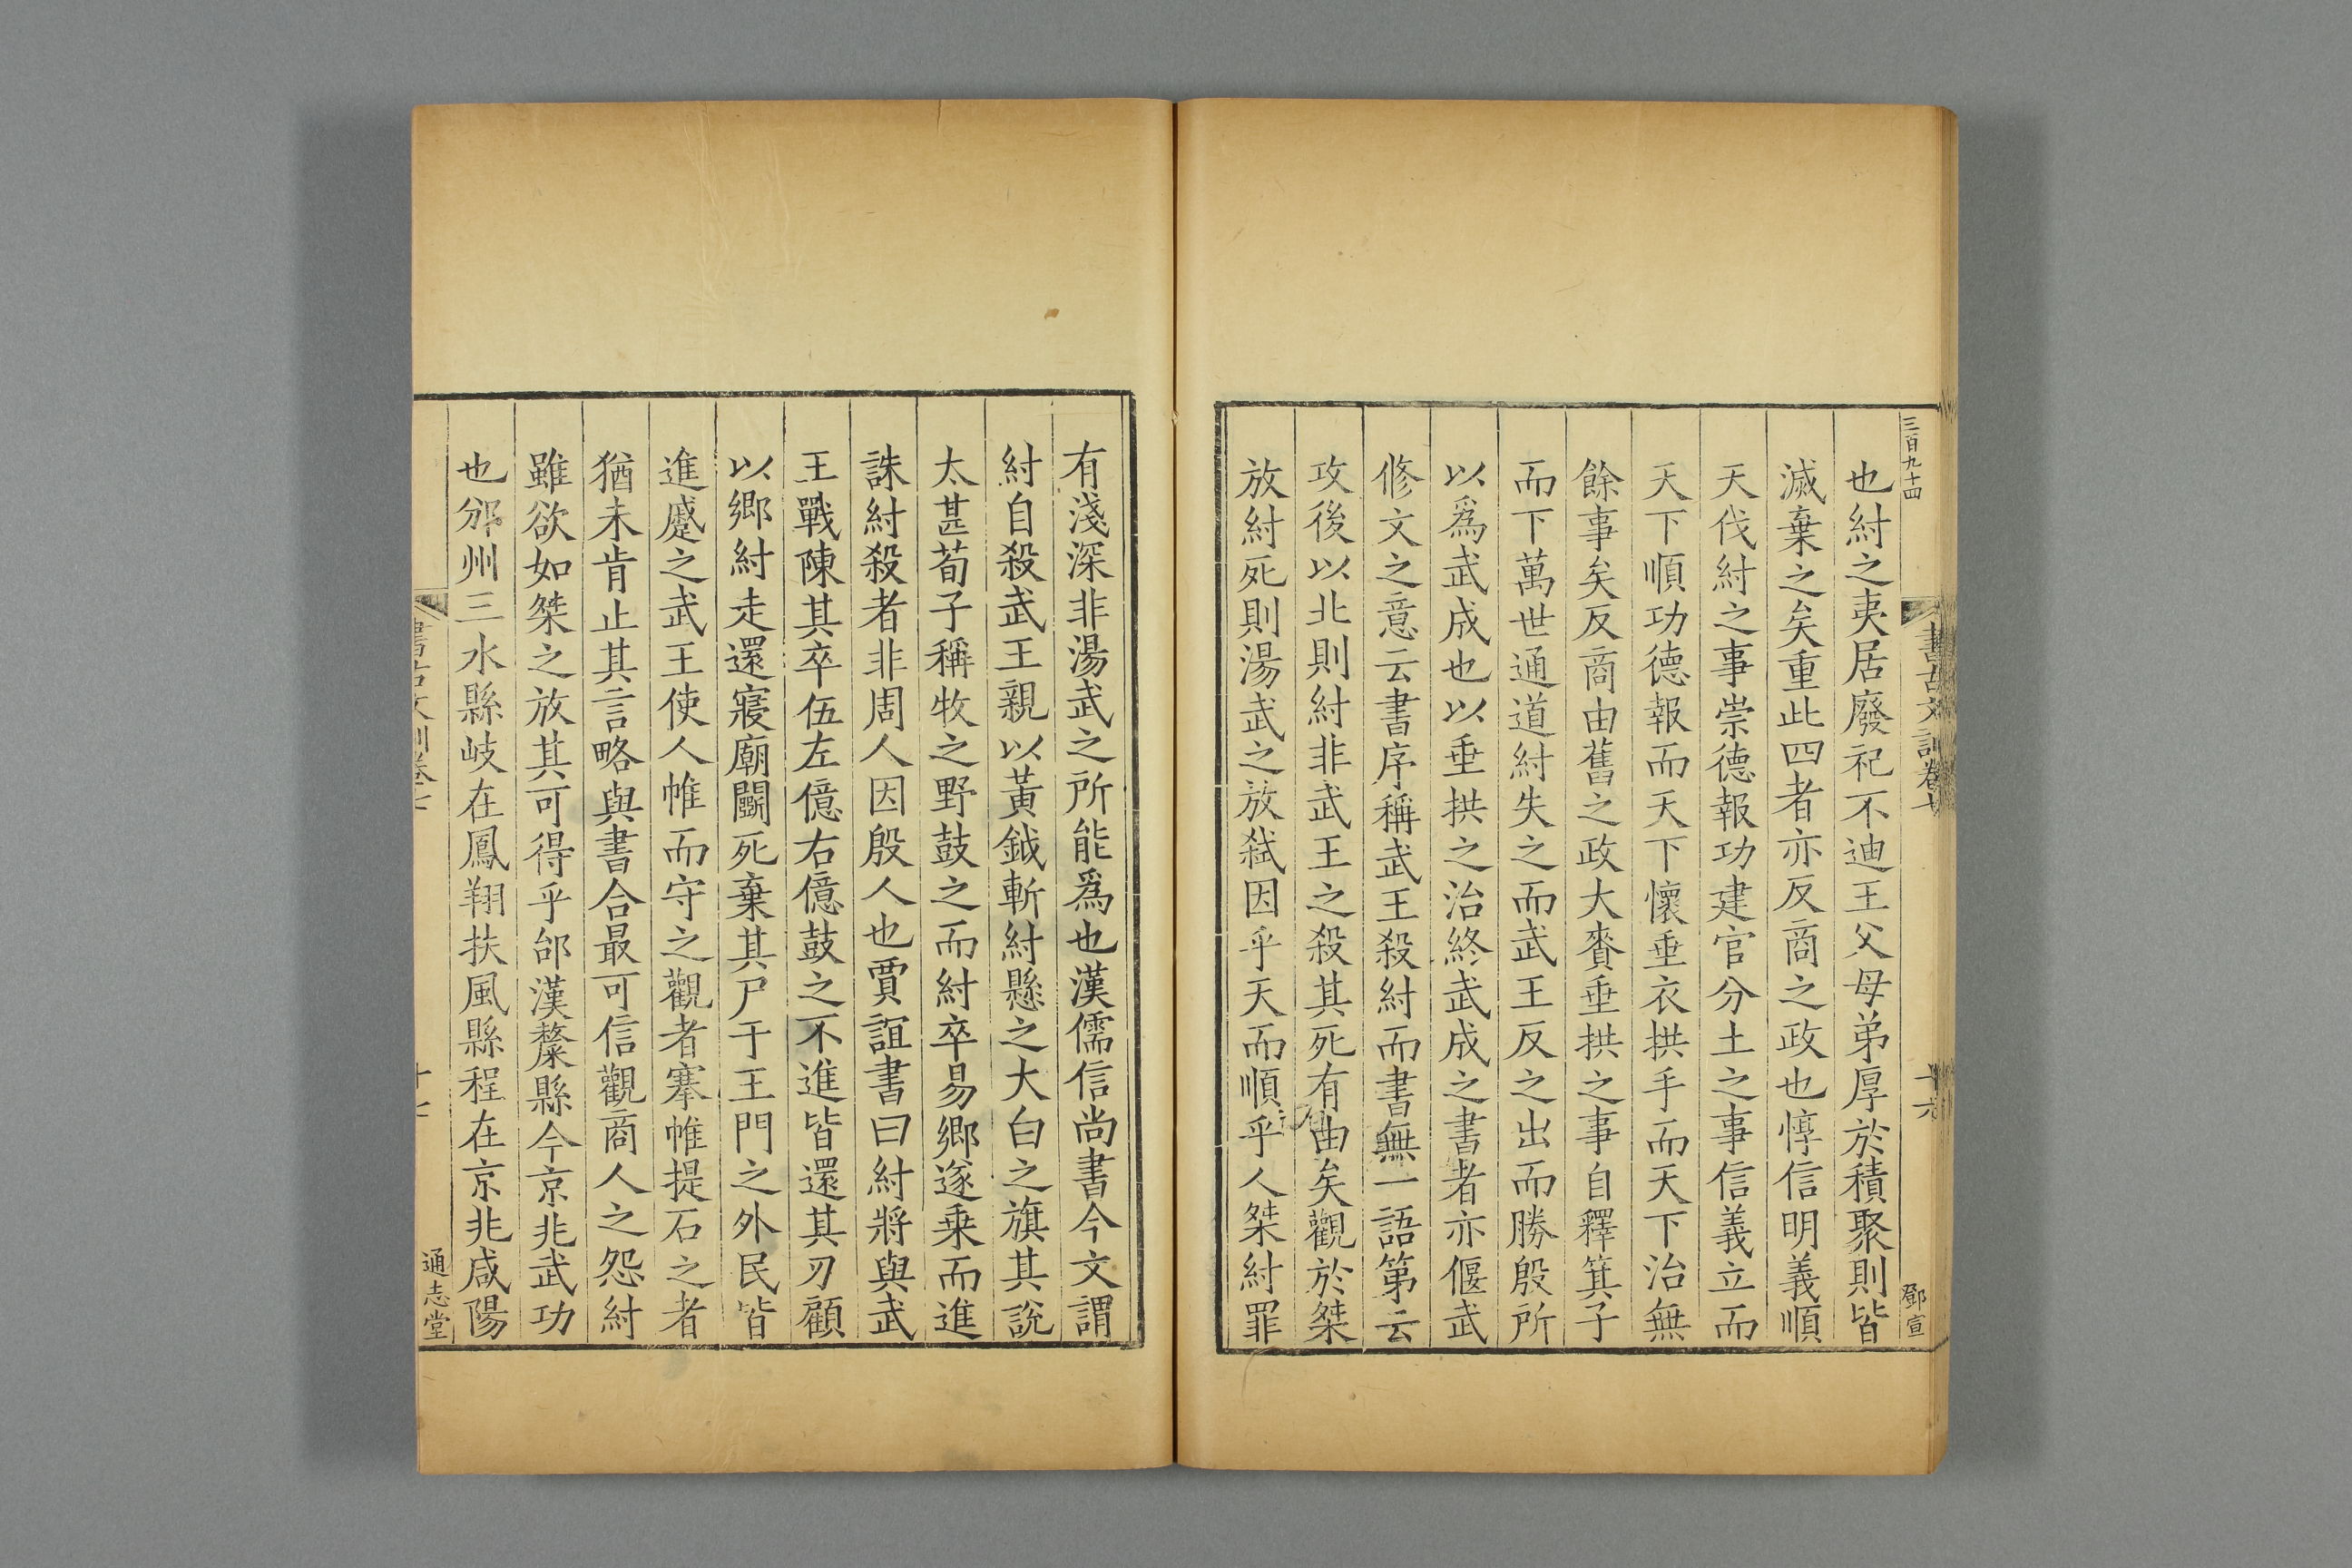 三百九十四
書古文訓卷七
十六
鄧宣
也紂之夷居廢祀不迪王父母弟厚於積聚則皆
滅棄之矣重此四者亦反商之政也惇信明義順
天伐紂之事崇德報功建官分土之事信義立而
天下順功德報而天下懷垂衣拱手而天下治無
餘事矣反商由舊之政大賚垂拱之事自釋箕子
而下萬世通道紂失之而武王反之出而勝殷所
以爲武成也以垂拱之治終武成之書者亦偃武
修文之意云書序稱武王殺紂而書無一語第云
攻後以北則紂非武王之殺其死有由矣觀於桀
放紂死則湯武之放弒因乎天而順乎人桀紂罪
有淺深非湯武之所能爲也漢儒信尚書今文謂
紂自殺武王親以黃鉞斬紂懸之大白之旗其說
太甚荀子稱牧之野鼓之而紂卒易鄉遂乗而進
誅紂殺者非周人因殷人也賈誼書曰紂將與武
王戰陳其卒伍左億右億鼓之不進皆還其刃顧
以鄉紂走還寢廟鬭死棄其尸于王門之外民皆
進蹙之武王使人帷而守之觀者搴帷提石之者
猶未肯止其言略與書合最可信觀商人之怨紂
雖欲如桀之放其可得乎邰漢斄縣今京兆武功
也邠州三水縣岐在鳳翔扶風縣程在京兆咸陽
書古文訓卷七
十七
通志堂